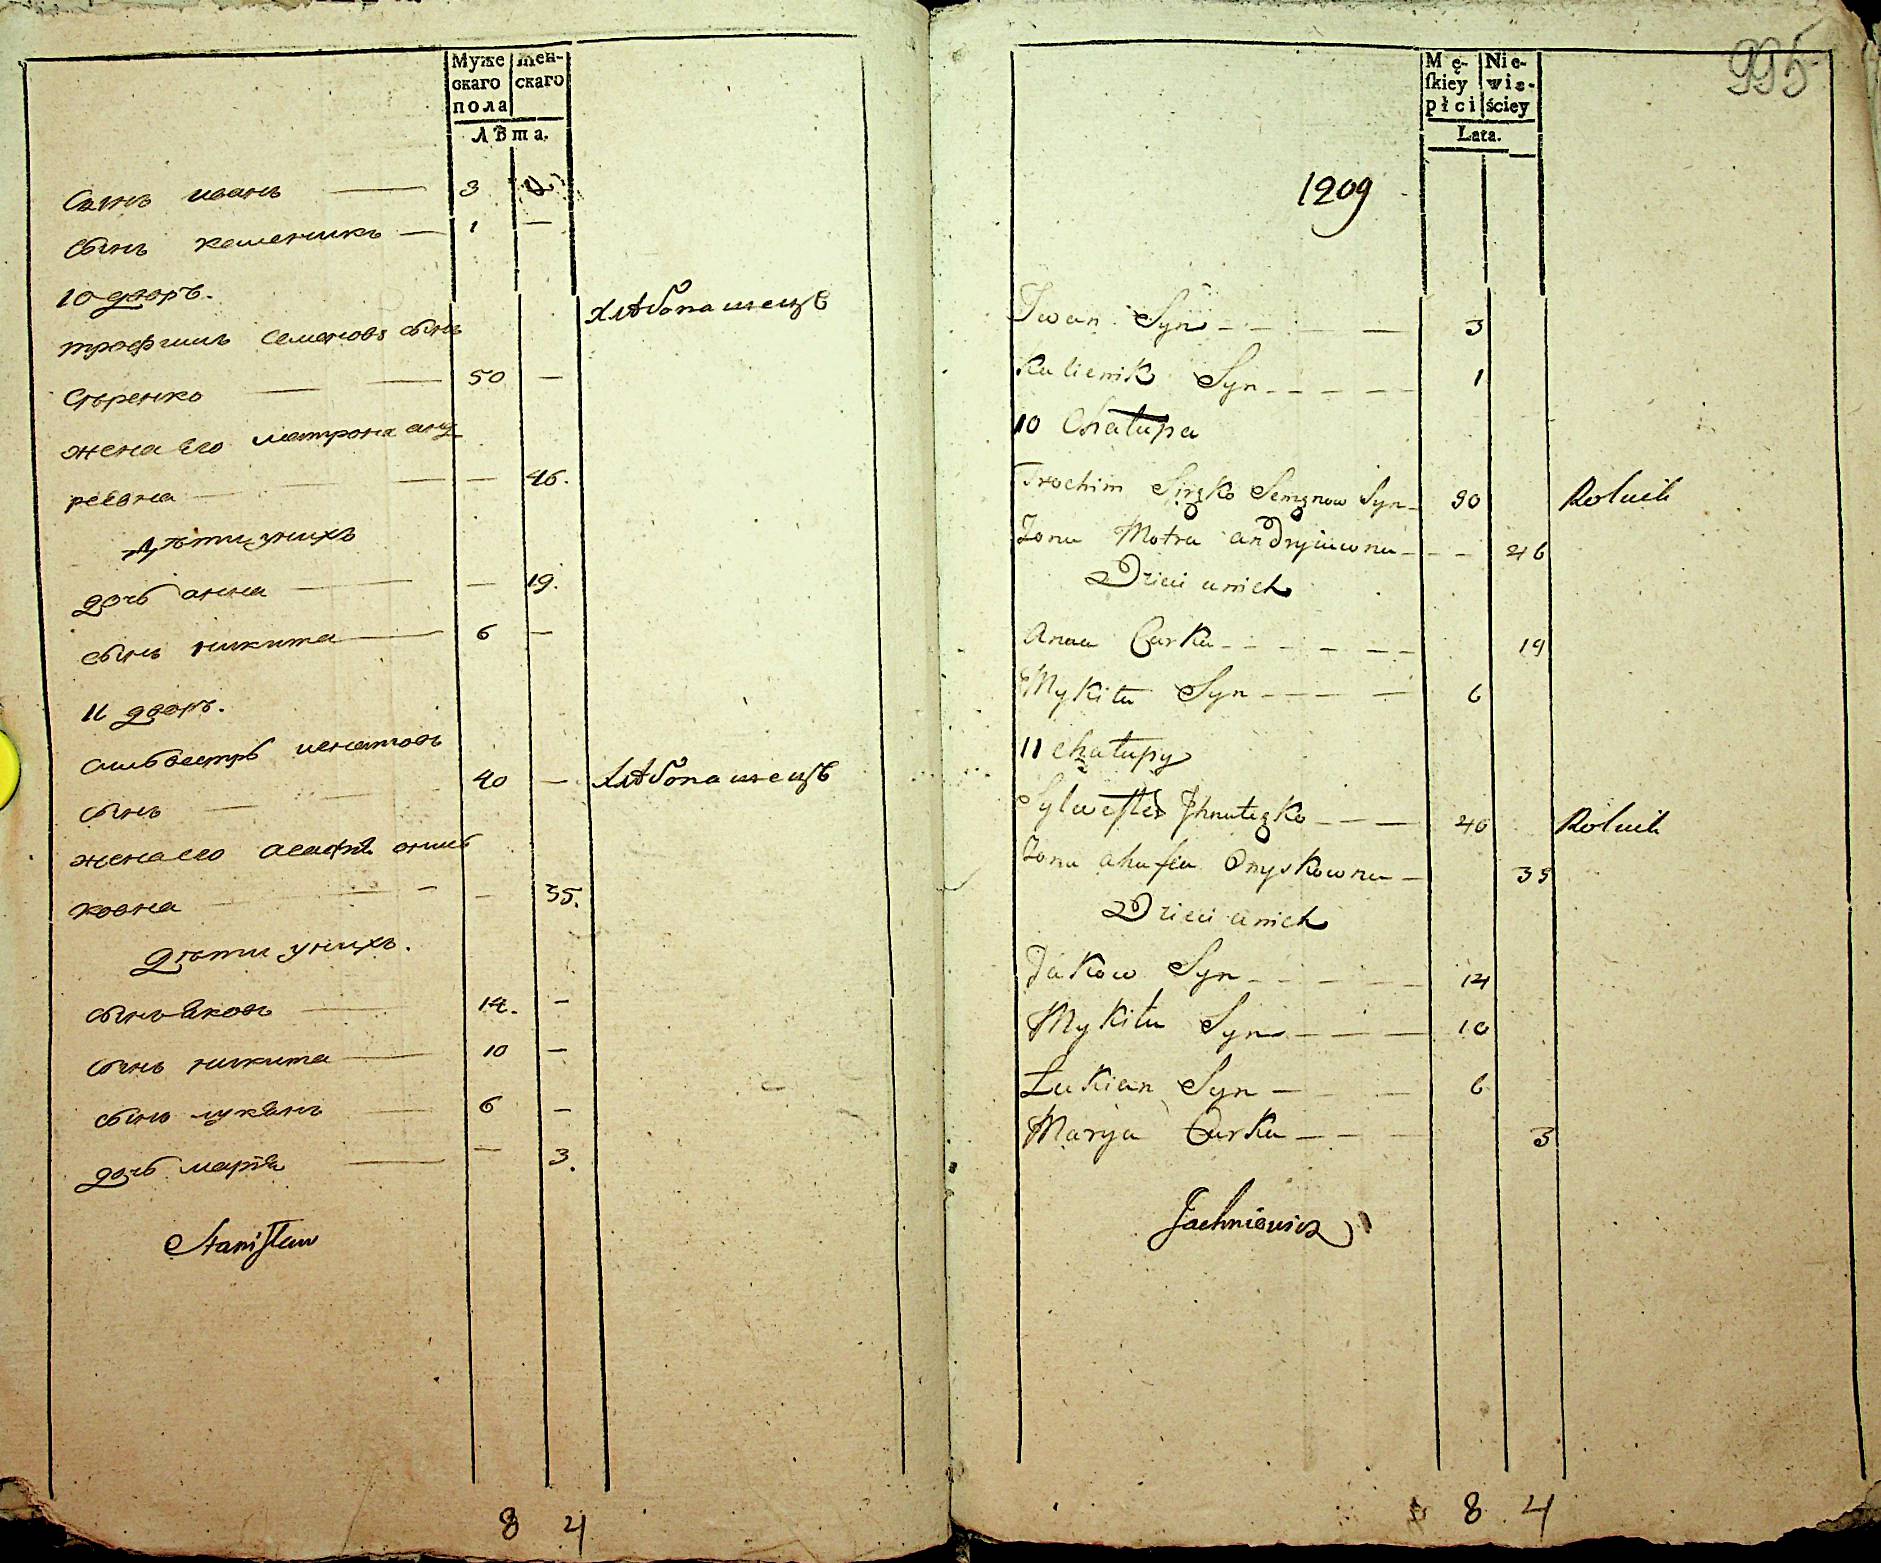 Муже
скаго
пола
Жен-
скаго
Лѣта.
Сынъ иванъ — 3
Сынъ каленикъ — 1 —
10 дворъ.
трофимъ Семеновъ сынъ хлѣбопашецъ
Сѣренко — — 50 —
жена его матрона анд
реевна — — — 46.
дѣти унихъ
дочь анна — — 19.
сынъ никита — 6 —
11 дворъ.
силвестръ игнатовъ
сынъ — — 40 — хлѣбопашецъ
жена его агафия онис
ковна — — — 35.
дѣти унихъ.
сынъ яковъ — 14. —
сынъ никита — 10 —
сынъ лукянъ — 6 —
дочь мария — — 3.
Stanisław
8 4
Mę-
skiey
płci
Nie-
wie-
ściey
Lata.
995
1209
Iwan Syn - - - — 3
Kalienik Syn - - - - 1
10 Chałupa
Trochim Siręko Semęnow Syn - 50 Rolnik
Zona Motra andryiuwna - - - 46
Dzieci u nich
Anna Curka - - - - - - 19
Mykita Syn - - - — 6
11 chałupy
Sylwester Jhnatęko - - — 40 Rolnik
Zona ahafia Onyskowna - - 35
Dzieci u nich
Jakow Syn - - - - - 14
Mykita Syn - - - — 10
Łukian Syn — - - 6
Marya Curka — - - 3
Jachniewicz
8 4